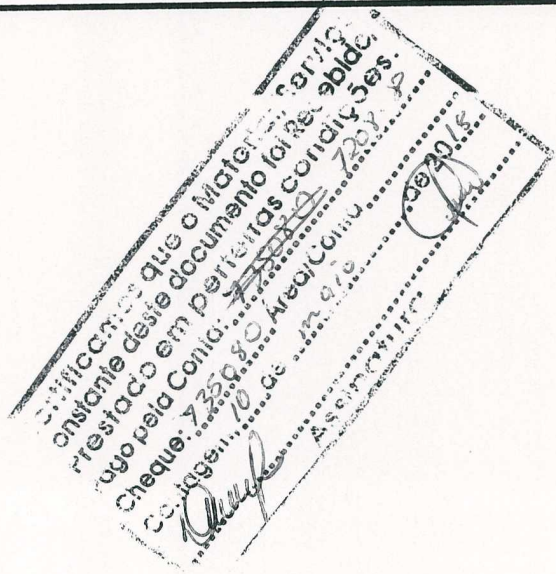 Certificamos que o Material, Serviço
constante deste documento foi Recebido,
Prestado em perfeitas condições.
Pago pela Conta: 7208-8
Cheque: 735080 Área/Conta
Contagem, 10 de maio de 2018
Assinatura